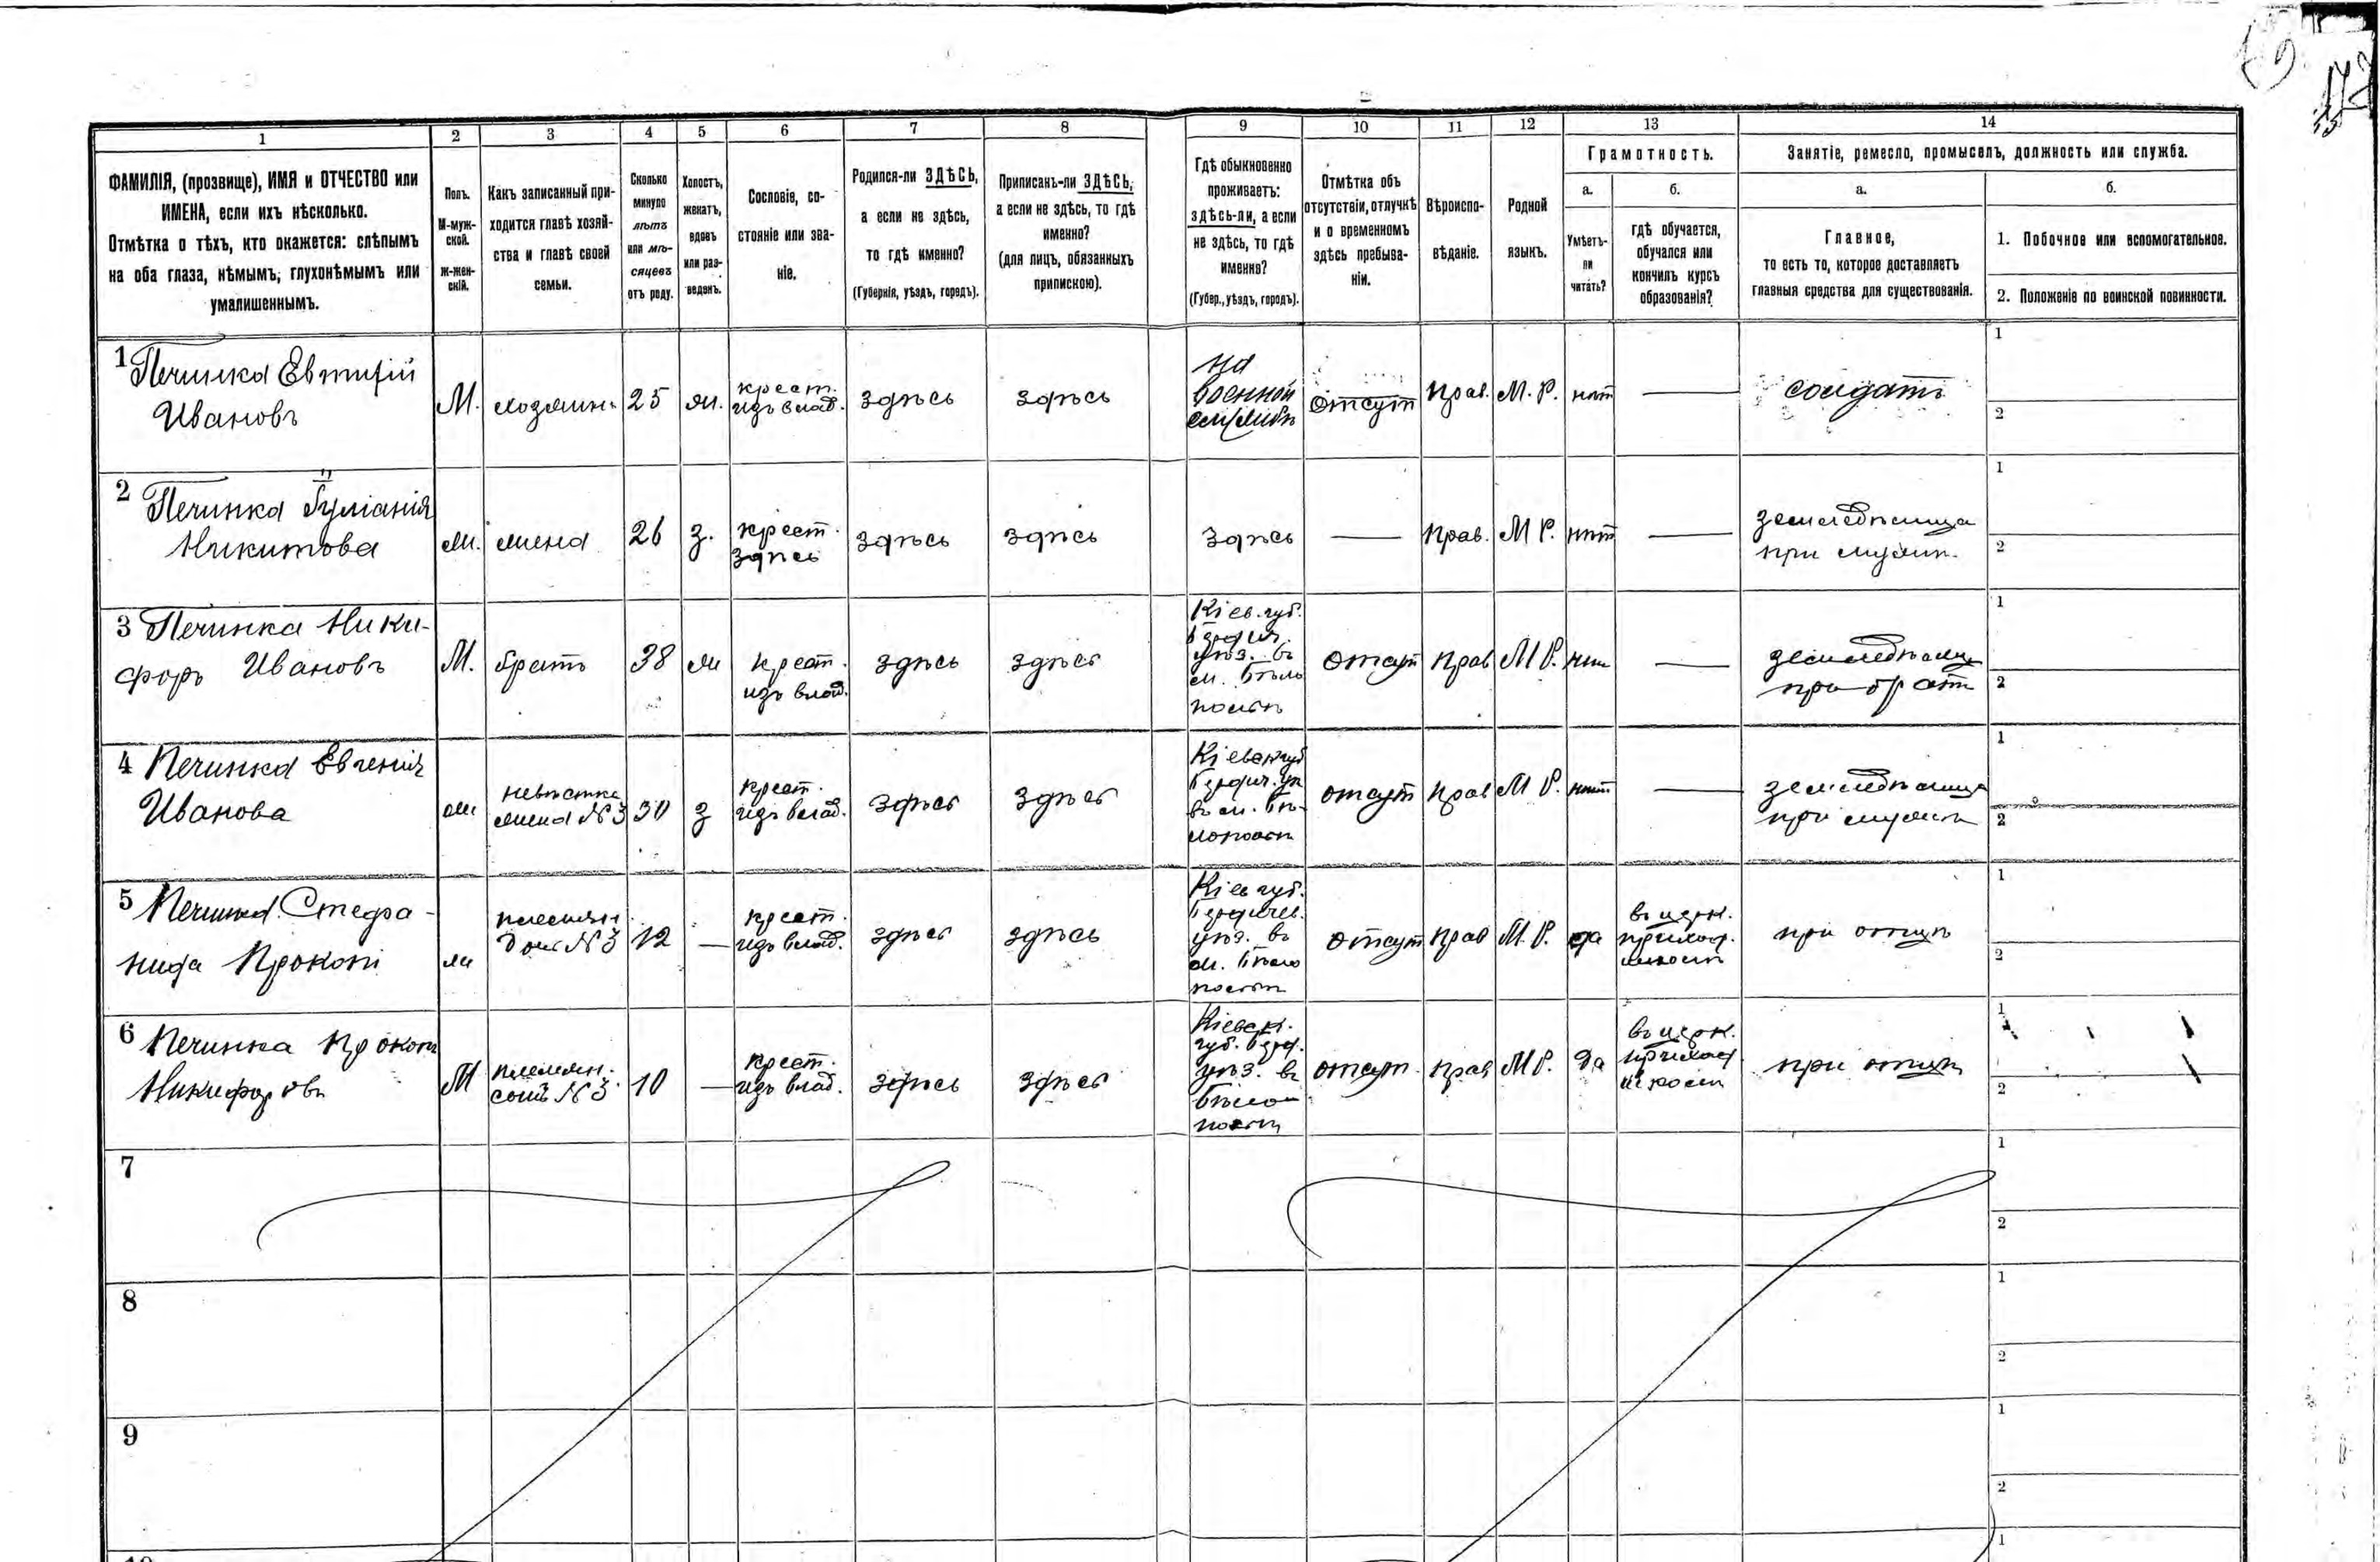 1 2 3 4 5 6 7 8 9 10 11 12 13 14
ФАМИЛІЯ, (прозвище), ИМЯ и ОТЧЕСТВО или
ИМЕНА, если ихъ нѣсколько.
Отмѣтка о тѣхъ, кто окажется: слѣпымъ
на оба глаза, нѣмымъ, глухонѣмымъ или
умалишеннымъ.
Полъ.
М-муж-
ской.
ж-жен-
скій.
Какъ записанный при-
ходится главѣ хозяй-
ства и главѣ своей
семьи.
Сколько
минуло
лѣтъ
или мѣ-
сяцевъ
отъ роду.
Холостъ,
женатъ,
вдовъ
или раз-
веденъ.
Сословіе, со-
стояніе или зва-
ніе.
Родился-ли ЗДѢСЬ,
а если не здѣсь,
то гдѣ именно?
(Губернія, уѣздъ, городъ).
Приписанъ-ли ЗДѢСЬ,
а если не здѣсь, то гдѣ
именно?
(для лицъ, обязанныхъ
припискою).
Гдѣ обыкновенно
проживаетъ:
здѣсь-ли, а если
не здѣсь, то гдѣ
именно?
(Губер., уѣздъ, городъ).
Отмѣтка объ
отсутствіи, отлучкѣ
и о временномъ
здѣсь пребыва-
ніи.
Вѣроиспо-
вѣданіе.
Родной
языкъ.
Грамотность.
а.
Умѣетъ-
ли
читать?
б.
гдѣ обучается,
обучался или
кончилъ курсъ
образованія?
Занятіе, ремесло, промыселъ, должность или служба.
а.
Главное,
то есть то, которое доставляетъ
главныя средства для существованія.
б.
1. Побочное или вспомогательное.
2. Положеніе по воинской повинности.
1 Печинка Евтифій
Ивановъ
М.
хозяинъ
25
ж.
крест.
изъ влад.
здѣсь
здѣсь
на
военной
службѣ
отсут
прав.
М. Р.
нѣт
солдатъ
1
2
2 Печинка
Никитова
ж.
жена
26
з.
крест.
здѣсь
здѣсь
здѣсь
здѣсь
прав.
М Р.
нѣт
земледѣлица
при мужѣ.
1
2
3 Печинка Ники-
форъ Ивановъ
М.
братъ
38
ж
крест.
изъ влад.
здѣсь
здѣсь
Кіев. губ.
Бердич.
уѣз. въ
м. Бѣло
полѣ
отсут
прав
М Р.
земледѣлец
при брат
1
2
4 Печинка Евгенія
Иванова
ж
невѣстка
жена №3
30
з
крест.
изъ влад.
здѣсь
здѣсь
отсут
прав
М Р.
нѣт
земледѣлица
при мужѣ
1
2
5 Печинка Стефа-
нида Прокоп
ж
племян.
доч №3
12
крест.
изъ влад.
здѣсь
здѣсь
Кіев губ.
Бердичев.
уѣз. въ
отсут
прав
М. Р.
да
въ церк.
приход.
школѣ
при отцѣ
1
2
6 Печинка Прокоп
Никифоровъ
М
племян.
сынъ №3
10
крест.
изъ влад.
здѣсь
здѣсь
Кіевск.
губ. Берд.
уѣз. въ
отсут.
прав
М Р.
да
въ церк.
приход
школѣ
при отцѣ
1
2
7
1
2
8
1
2
9
1
2
1